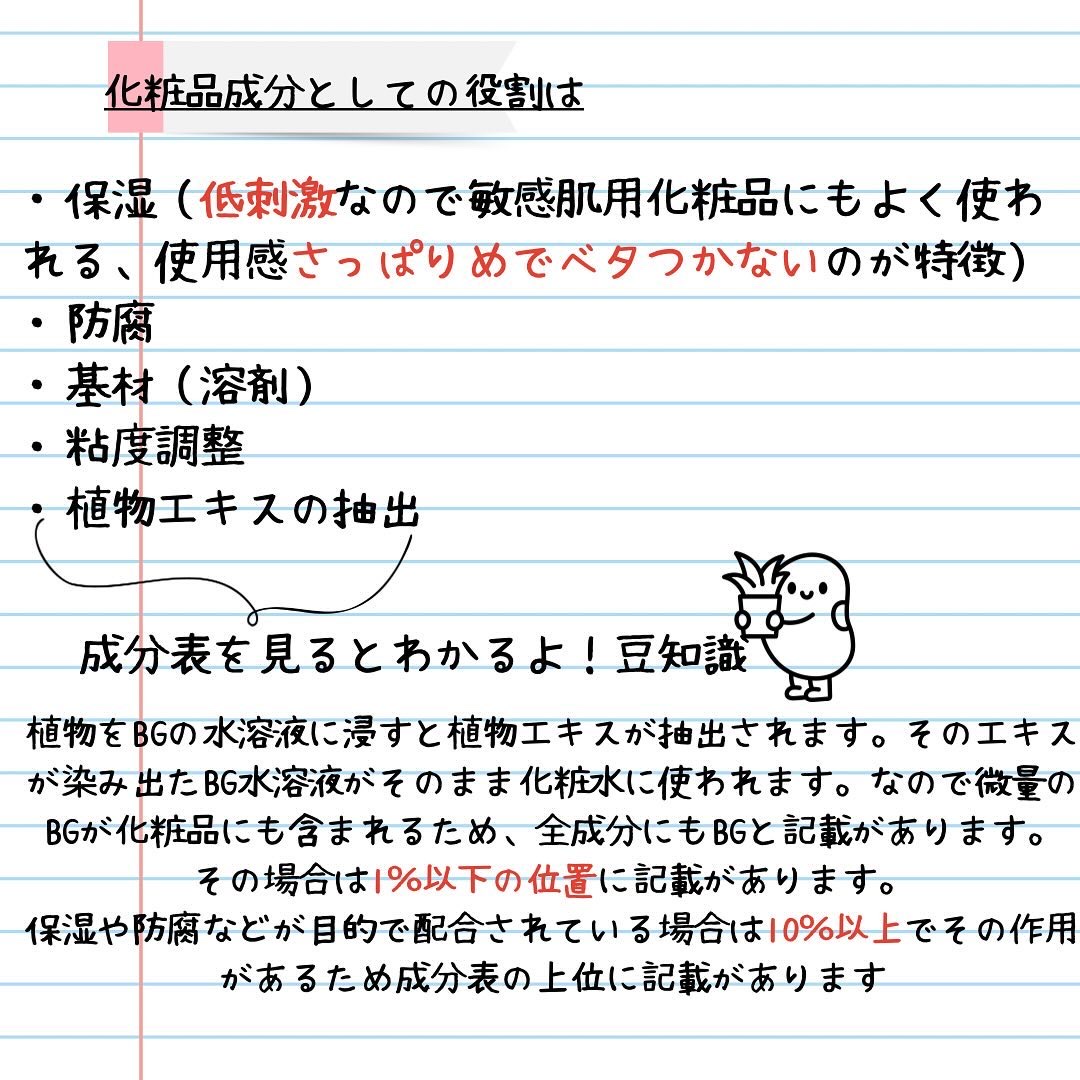 化粧品成分としての役割は
・保湿(低刺激なので敏感肌用化粧品にもよく使わ
れる、使用感さっぱりめでベタつかないのが特徴)
・防腐
・基材(溶剤)
・粘度調整
・植物エキスの抽出
成分表を見るとわかるよ!豆知識
植物をBGの水溶液に浸すと植物エキスが抽出されます。そのエキス
が染み出たBG水溶液がそのまま化粧水に使われます。なので微量の
BGが化粧品にも含まれるため、全成分にもBGと記載があります。
その場合は1%以下の位置に記載があります。
保湿や防腐などが目的で配合されている場合は10%以上でその作用
があるため成分表の上位に記載があります